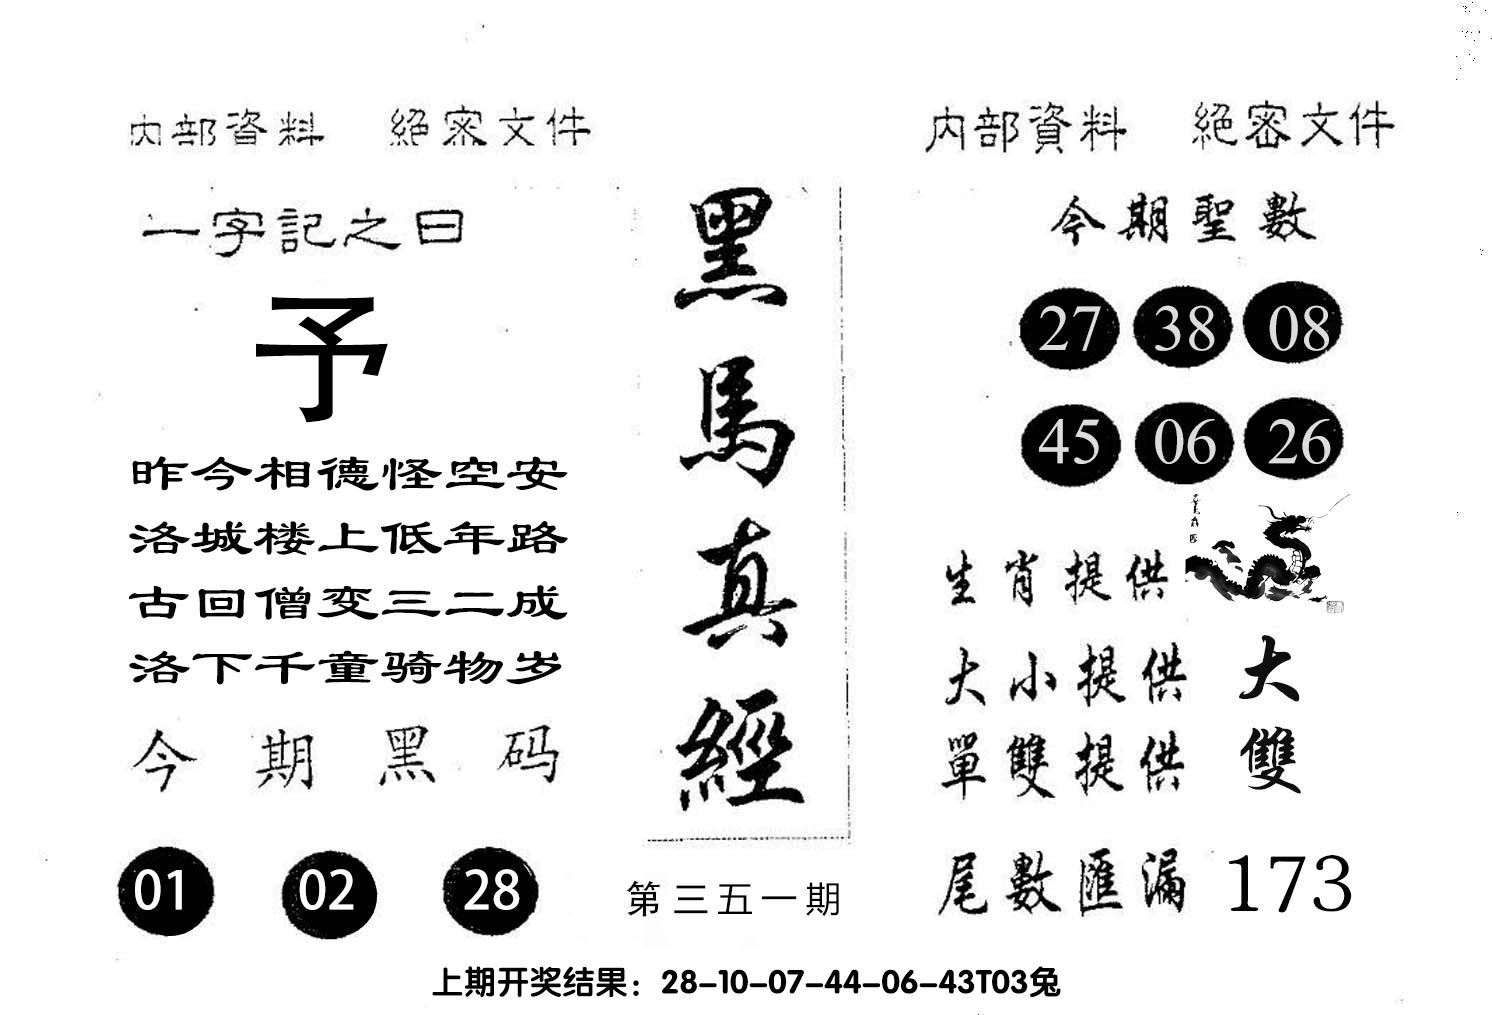 内部資料 絕密文件
一字記之曰
予
昨今相德怪空安
洛城楼上低年路
古回僧变三二成
洛下千童骑物岁
今期黑码
01 02 28
黑馬真經
第三五一期
内部資料 絕密文件
今期聖數
27 38 08
45 06 26
生肖提供
大小提供 大
單雙提供 雙
尾數匯漏 173
上期开奖结果：28-10-07-44-06-43T03兔